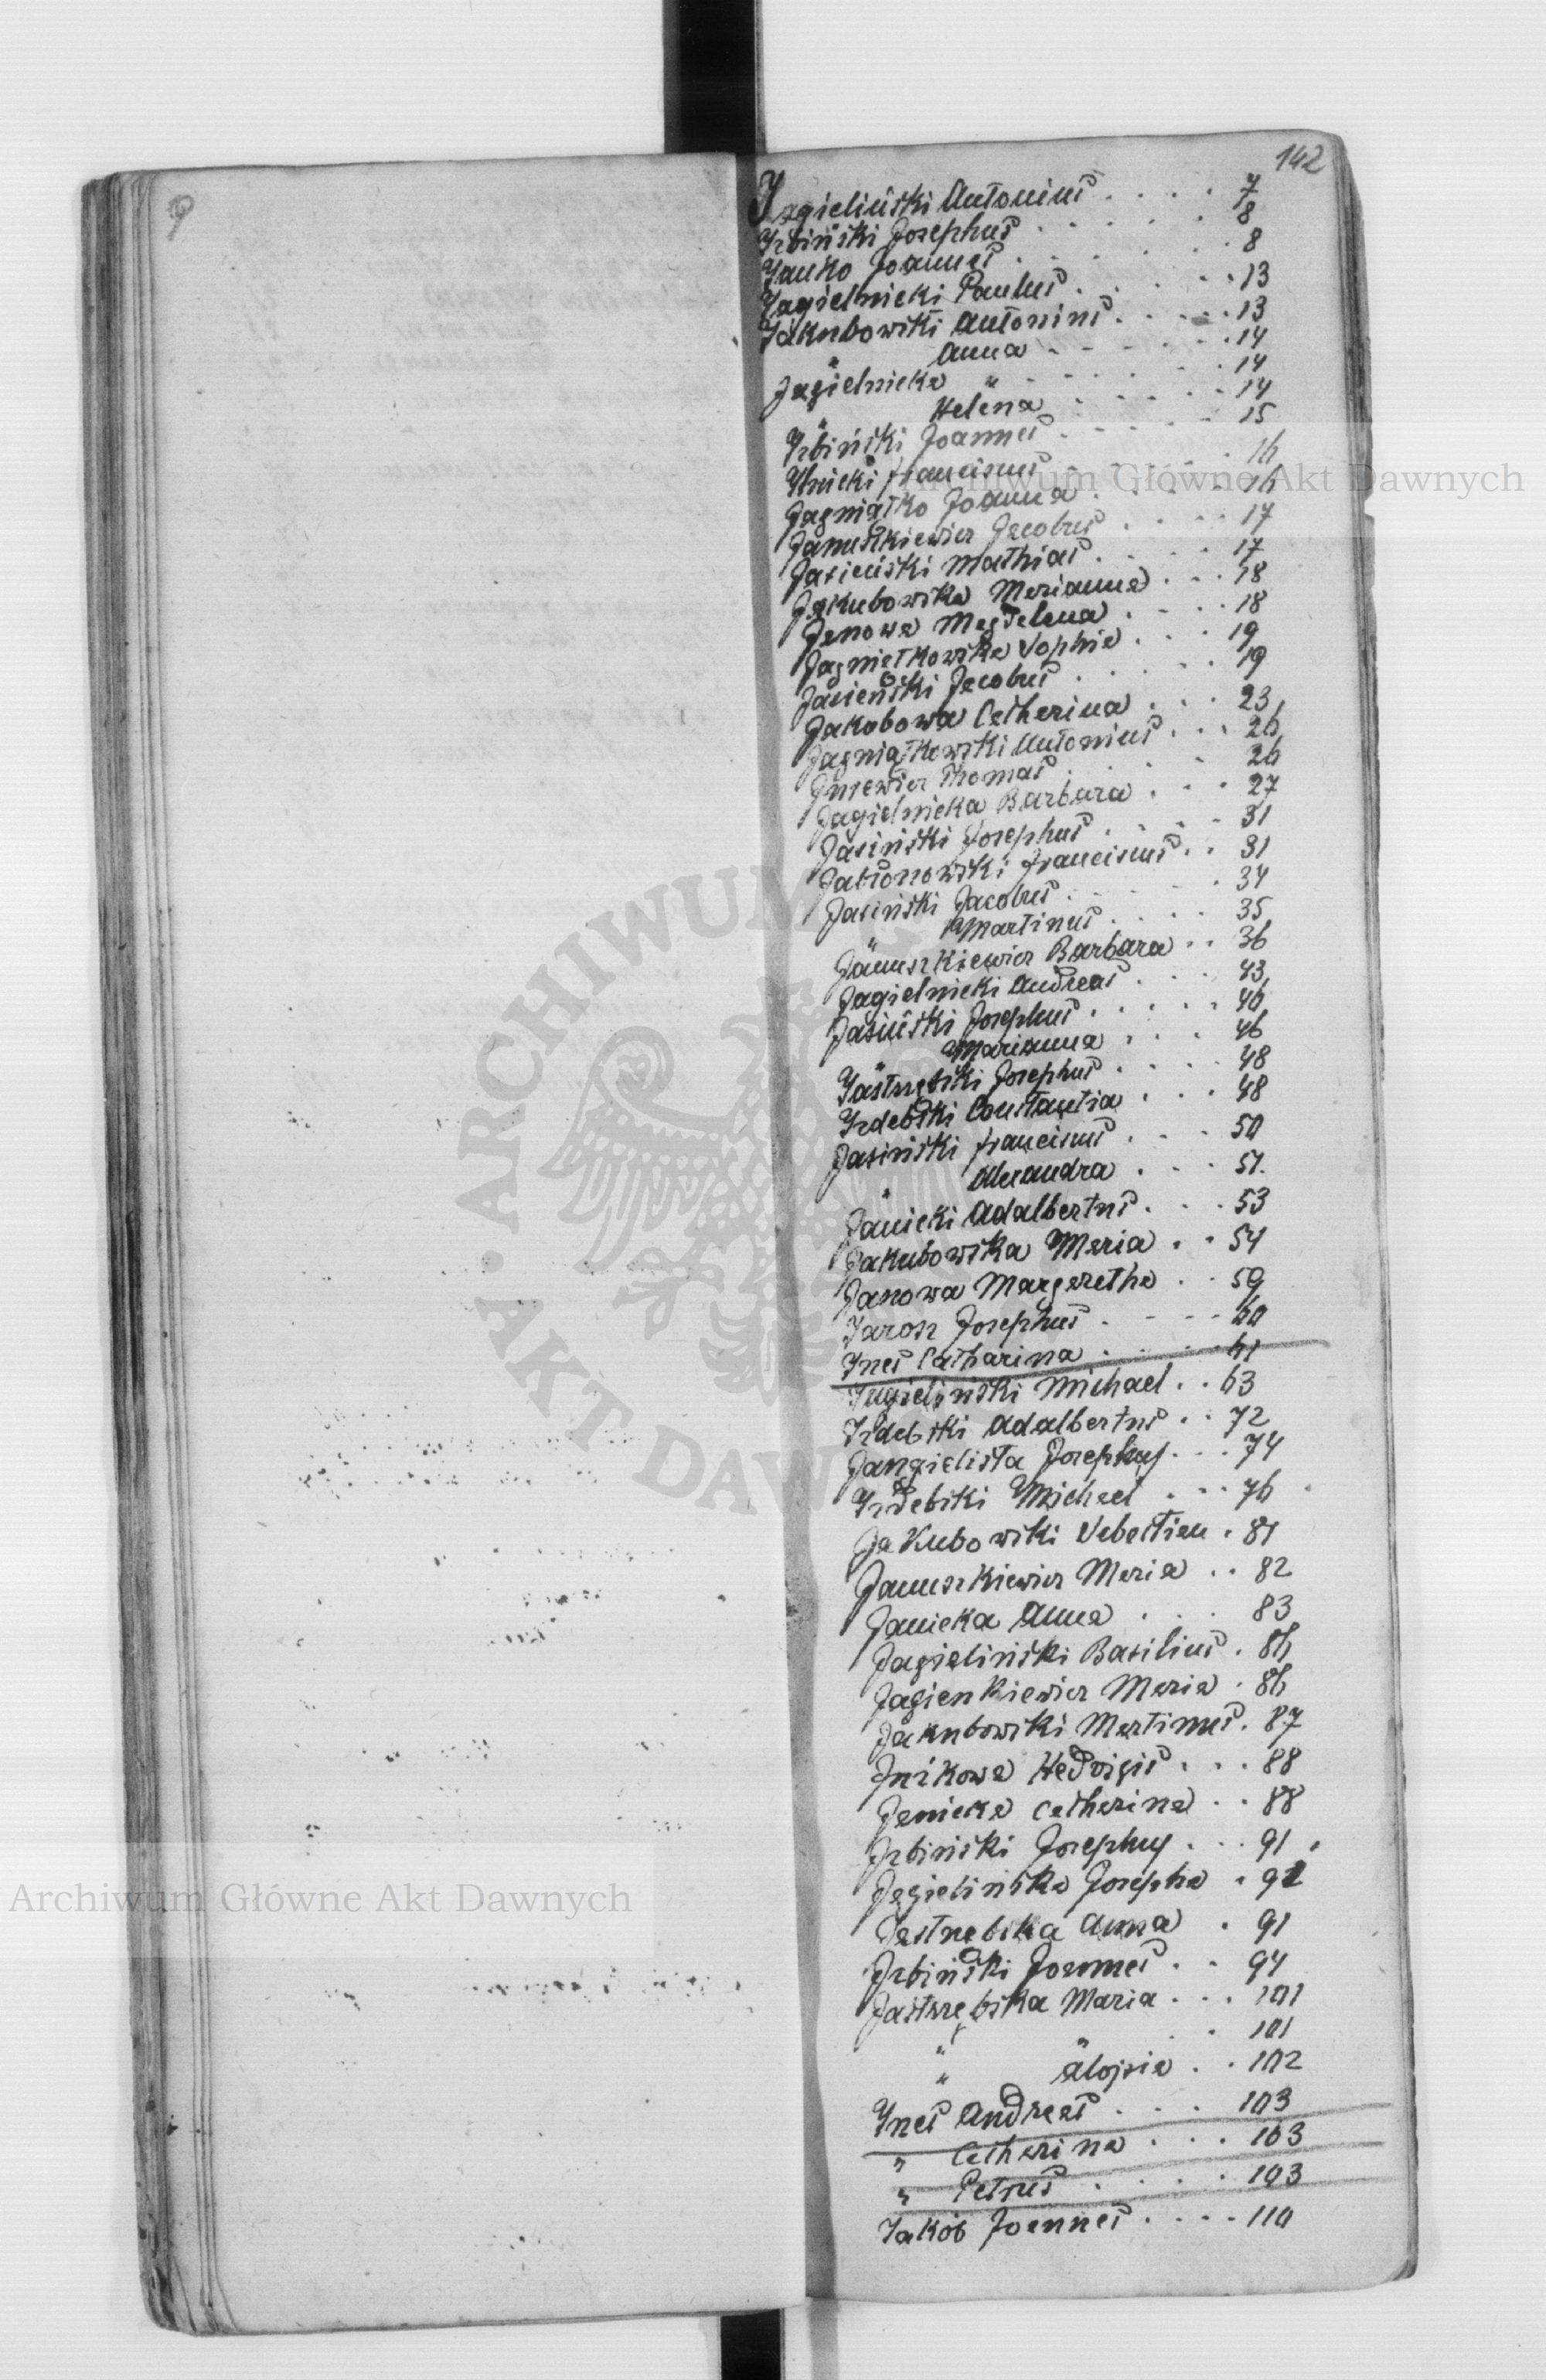 142
Jagieliński Antonius . . . . 7
Izbiński Josephus . . . . . 8
Janko Joannes . . . . . . 8
Jagielnicki Paulus . . . . . 13
Jakubowski Antonius . . . . . 13
" Anna . . . . . . 14
Jagielnicka " . . . . . . 14
" Helena . . . . . 14
Izbiński Joannes . . . . . 15
Ilnicki Franciscus . . . . . 16
Jagniątko Joanna . . . . . 16
Januszkiewicz Jacobus . . . . 17
Jasieński Mathias . . . . . 17
Jakubowska Marianna . . . 18
Janowa Magdalena . . . . 18
Jagniętkowska Sophia . . . . 19
Jasieński Jacobus . . . . . 19
Jakobowa Catherina . . . 23
Jagniątkowski Antonius . . . 26
Thomas . . . . . 26
Jagielnicka Barbara . . . 27
Jasiński Josephus . . . . . 31
Jabłonowski Franciscus . . 31
Jasiński Jacobus . . . . . 34
" Martinus . . . . 35
Januszkiewicz Barbara . . 36
Jagielnicki Andreas . . . 43
Jasiński Josephus . . . . . 46
" Marianna . . . . 46
Jastrzębski Josephus . . . . 48
Izdebski Constantia . . . 48
Jasiński Franciscus . . . . 50
" Alexandra . . . 51.
Janicki Adalbertus . . . 53
Jakubowska Maria . . 54
Janowa Margaretha . . 59
Jarosz Josephus . . . . 60
Ines Catharina . . . . . 61
Jagieliński Michael . . 63
Izdebski Adalbertus . . 72
Jangielista Josephus . . . 74
Izdebski Michael . . . 76
Jakubowski Sebastian . 81
Januszkiewicz Maria . . 82
Janicka Anna . . . 83
Jagieliński Basilius . 86
Jagienkiewicz Maria . 86
Jakubowski Martinus . 87
Hedvigis . . . 88
Janicka Catherina . . 88
Izbiński Josephus . . . 91
Jagielińska Josepha . 91
Jastrzębska Anna . 91
Izbiński Joannes . . 94
Jastrzębska Maria . . . 101
" " . . 101
" Alojsia . . 102
Ines Andreas . . . 103
" Catherina . . . 103
" Petrus . . . . 103
Jakób Joannes . . . . 110
Archiwum Główne Akt Dawnych
Archiwum Główne Akt Dawnych
ARCHIWUM
AKT DAW